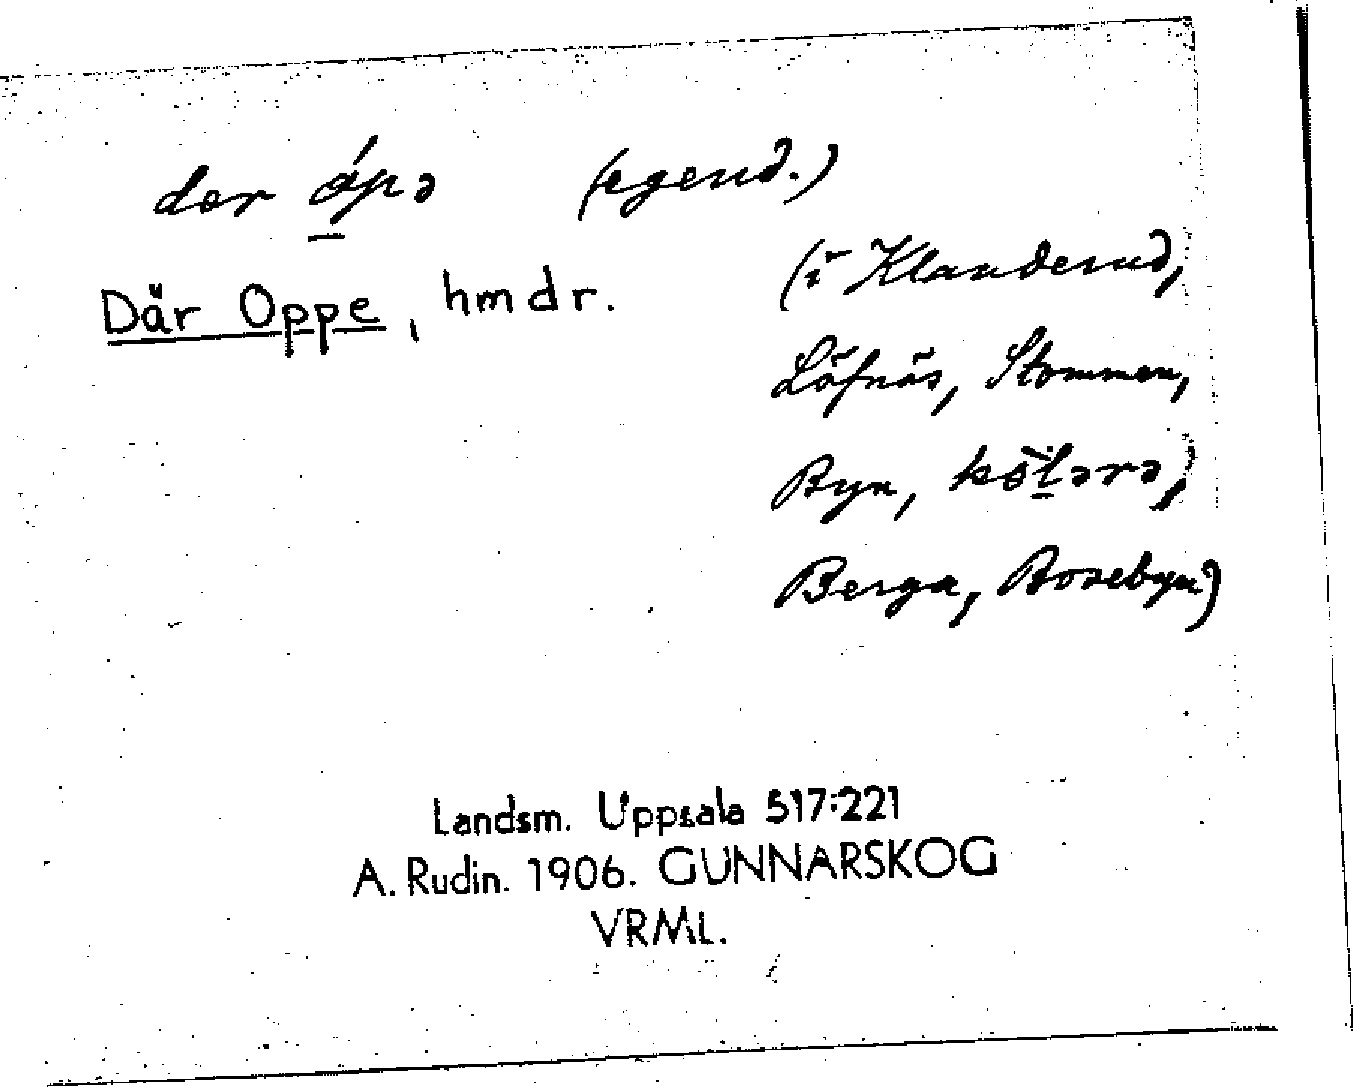 der ópə (egend.)
Där Oppe, hmdr.
(i Klanderud,
Löfnäs, Stommen,
Byn, köłərə,
Berga, Bosebyn)
Landsm. Uppsala 517:221
A. Rudin. 1906. GUNNARSKOG
VRML.